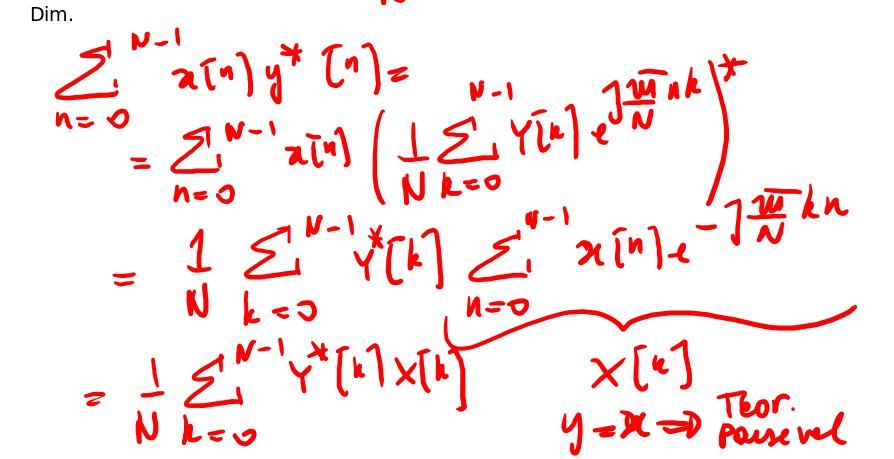 Dim.
∑_{n=0}^{N-1} x[n] y* [n] =
= ∑_{n=0}^{N-1} x[n] ( 1/N ∑_{k=0}^{N-1} Y[k] e^{j 2π/N nk} )*
= 1/N ∑_{k=0}^{N-1} Y*[k] ∑_{n=0}^{N-1} x[n] e^{-j 2π/N kn}
= 1/N ∑_{k=0}^{N-1} Y*[k] X[k]
X[k]
y = x ⇒ Teor. Parseval